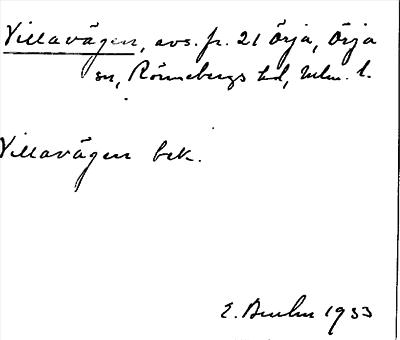 Villavägen, avs. fr. 21 Örja, Örja
sn, Rönnebergs hd, Mlm. l.
Villavägen bek.
E. 1933